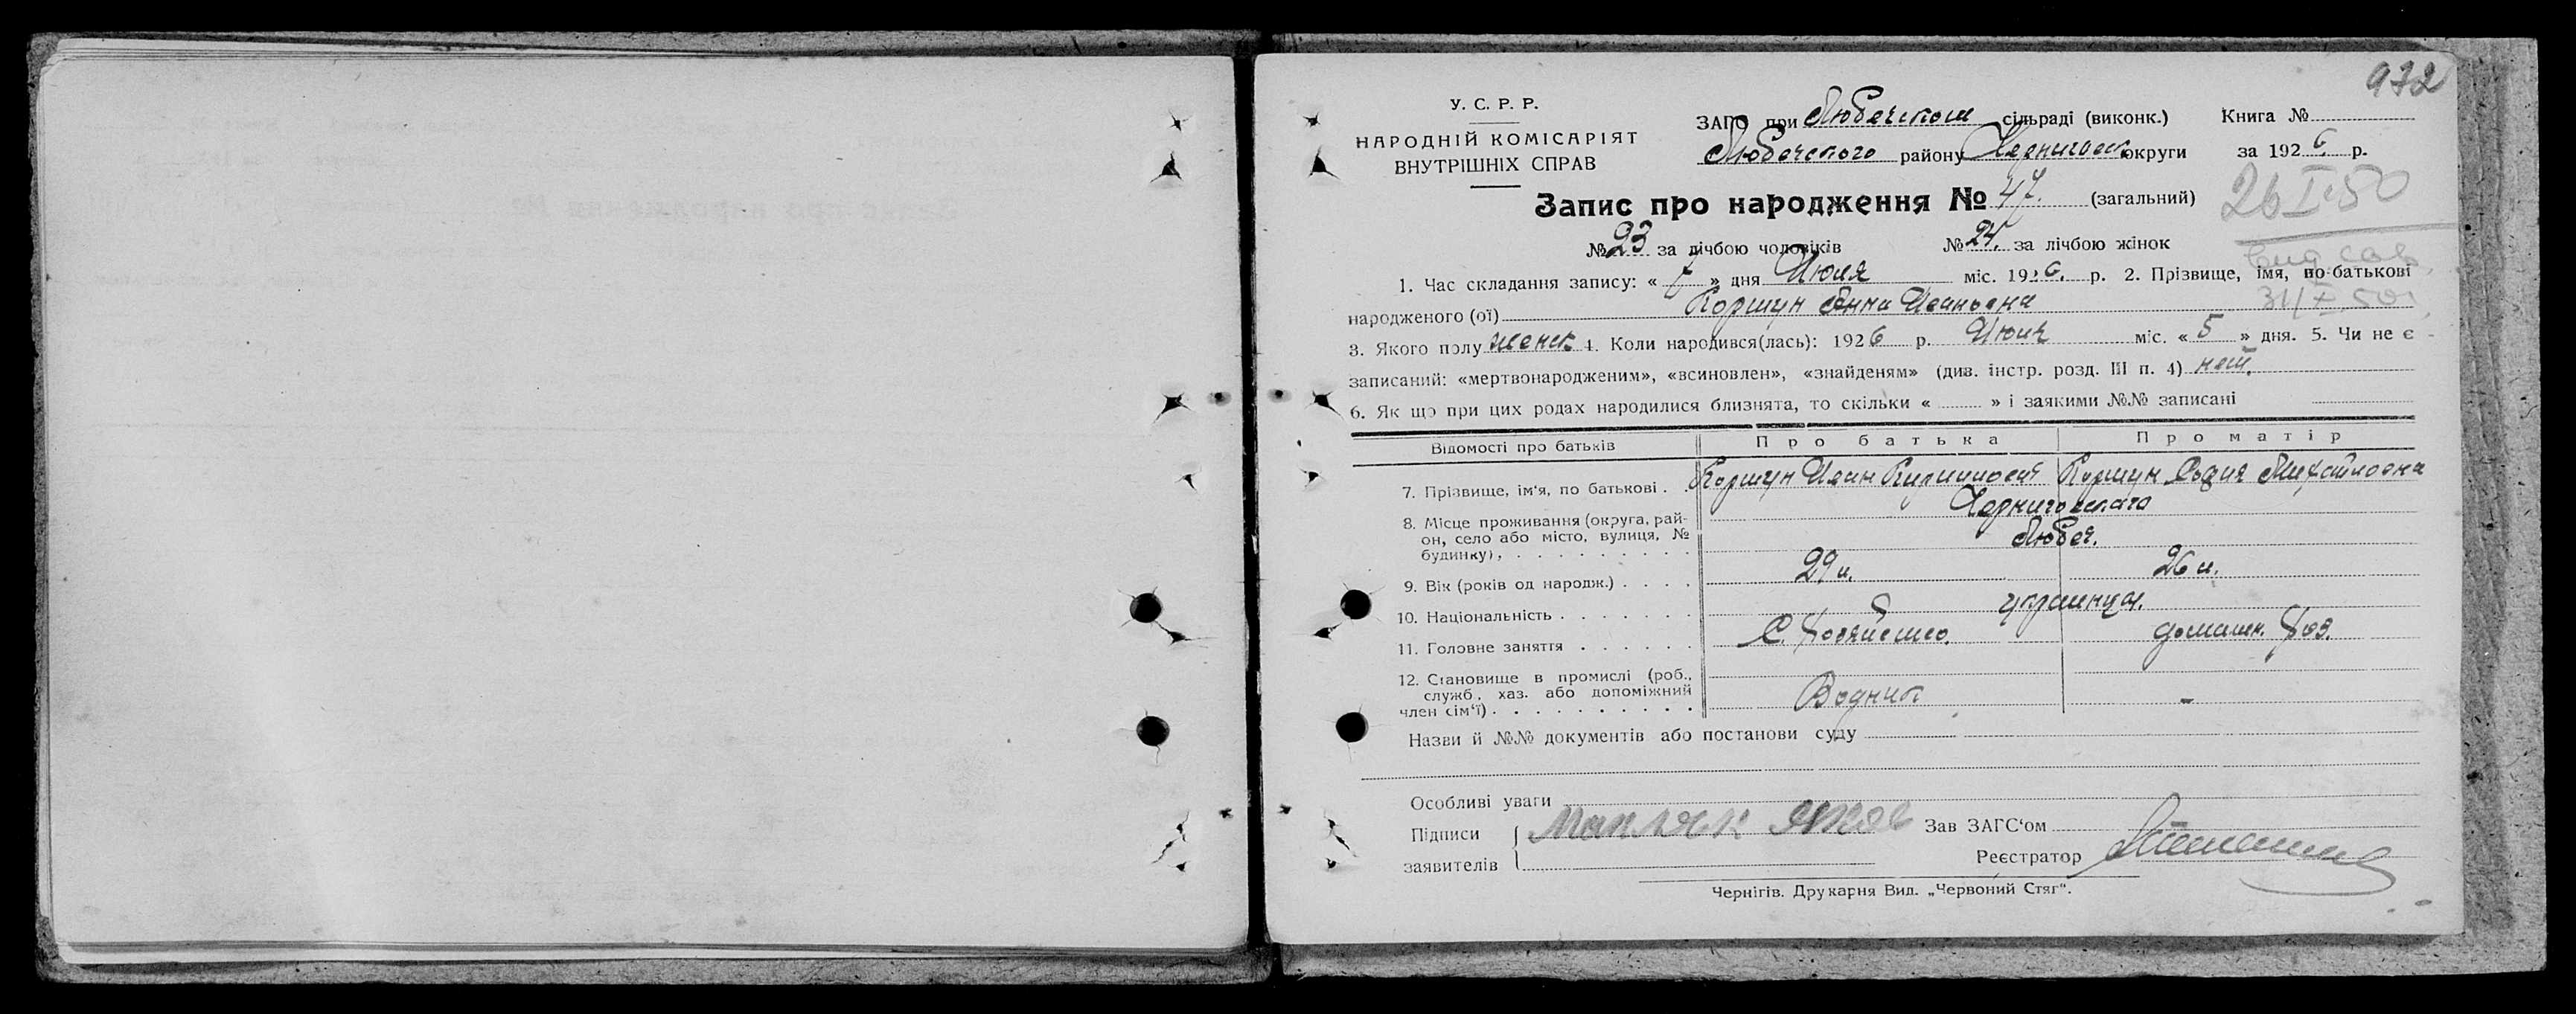 972
У. С. Р. Р.
НАРОДНІЙ КОМІСАРІЯТ
ВНУТРІШНІХ СПРАВ
ЗАГС при Любечском сільраді (виконк.) Книга №
Любечского району Черниговск округи за 1926 р.
Запис про народження № 47. (загальний)
26 I 50
№ 23 за лічбою чоловіків № 24. за лічбою жінок
1. Час складання запису: « 7 » дня Июля міс. 1926. р. 2. Прізвище, імя, по-батькові
народженого (ої) Коршун Анна Ивановна
31/X 50
3. Якого полу женск 4. Коли народився(лась): 1926 р. Июля міс. « 5 » дня. 5. Чи не є
записаний: «мертвонародженим», «всиновлен», «знайденям» (див. інстр. розд. III п. 4) нет.
6. Як що при цих родах народилися близнята, то скільки « » і заякими №№ записані
Відомості про батьків Про батька Про матір
7. Прізвище, ім'я, по батькові . . Коршун Иван Коршун София Михайловна
8. Місце проживання (округа, рай- Черниговского
он, село або місто, вулиця, № Любеч.
будинку), . . . . . . . . . .
9. Вік (років од народж.) . . . . 29 л. 26 л.
10. Національність . . . . . . . украинцы.
11. Головне заняття . . . . . . С. Хозяйство. домашн. хоз.
12. Становище в промислі (роб.,
служб, хаз. або допоміжний Водник -
член сім'ї) . . . . . . . . . .
Назви й №№ документів або постанови суду
Особливі уваги
Підписи Зав ЗАГС'ом
заявителів Реєстратор
Чернігів. Друкарня Вид. „Червоний Стяг".